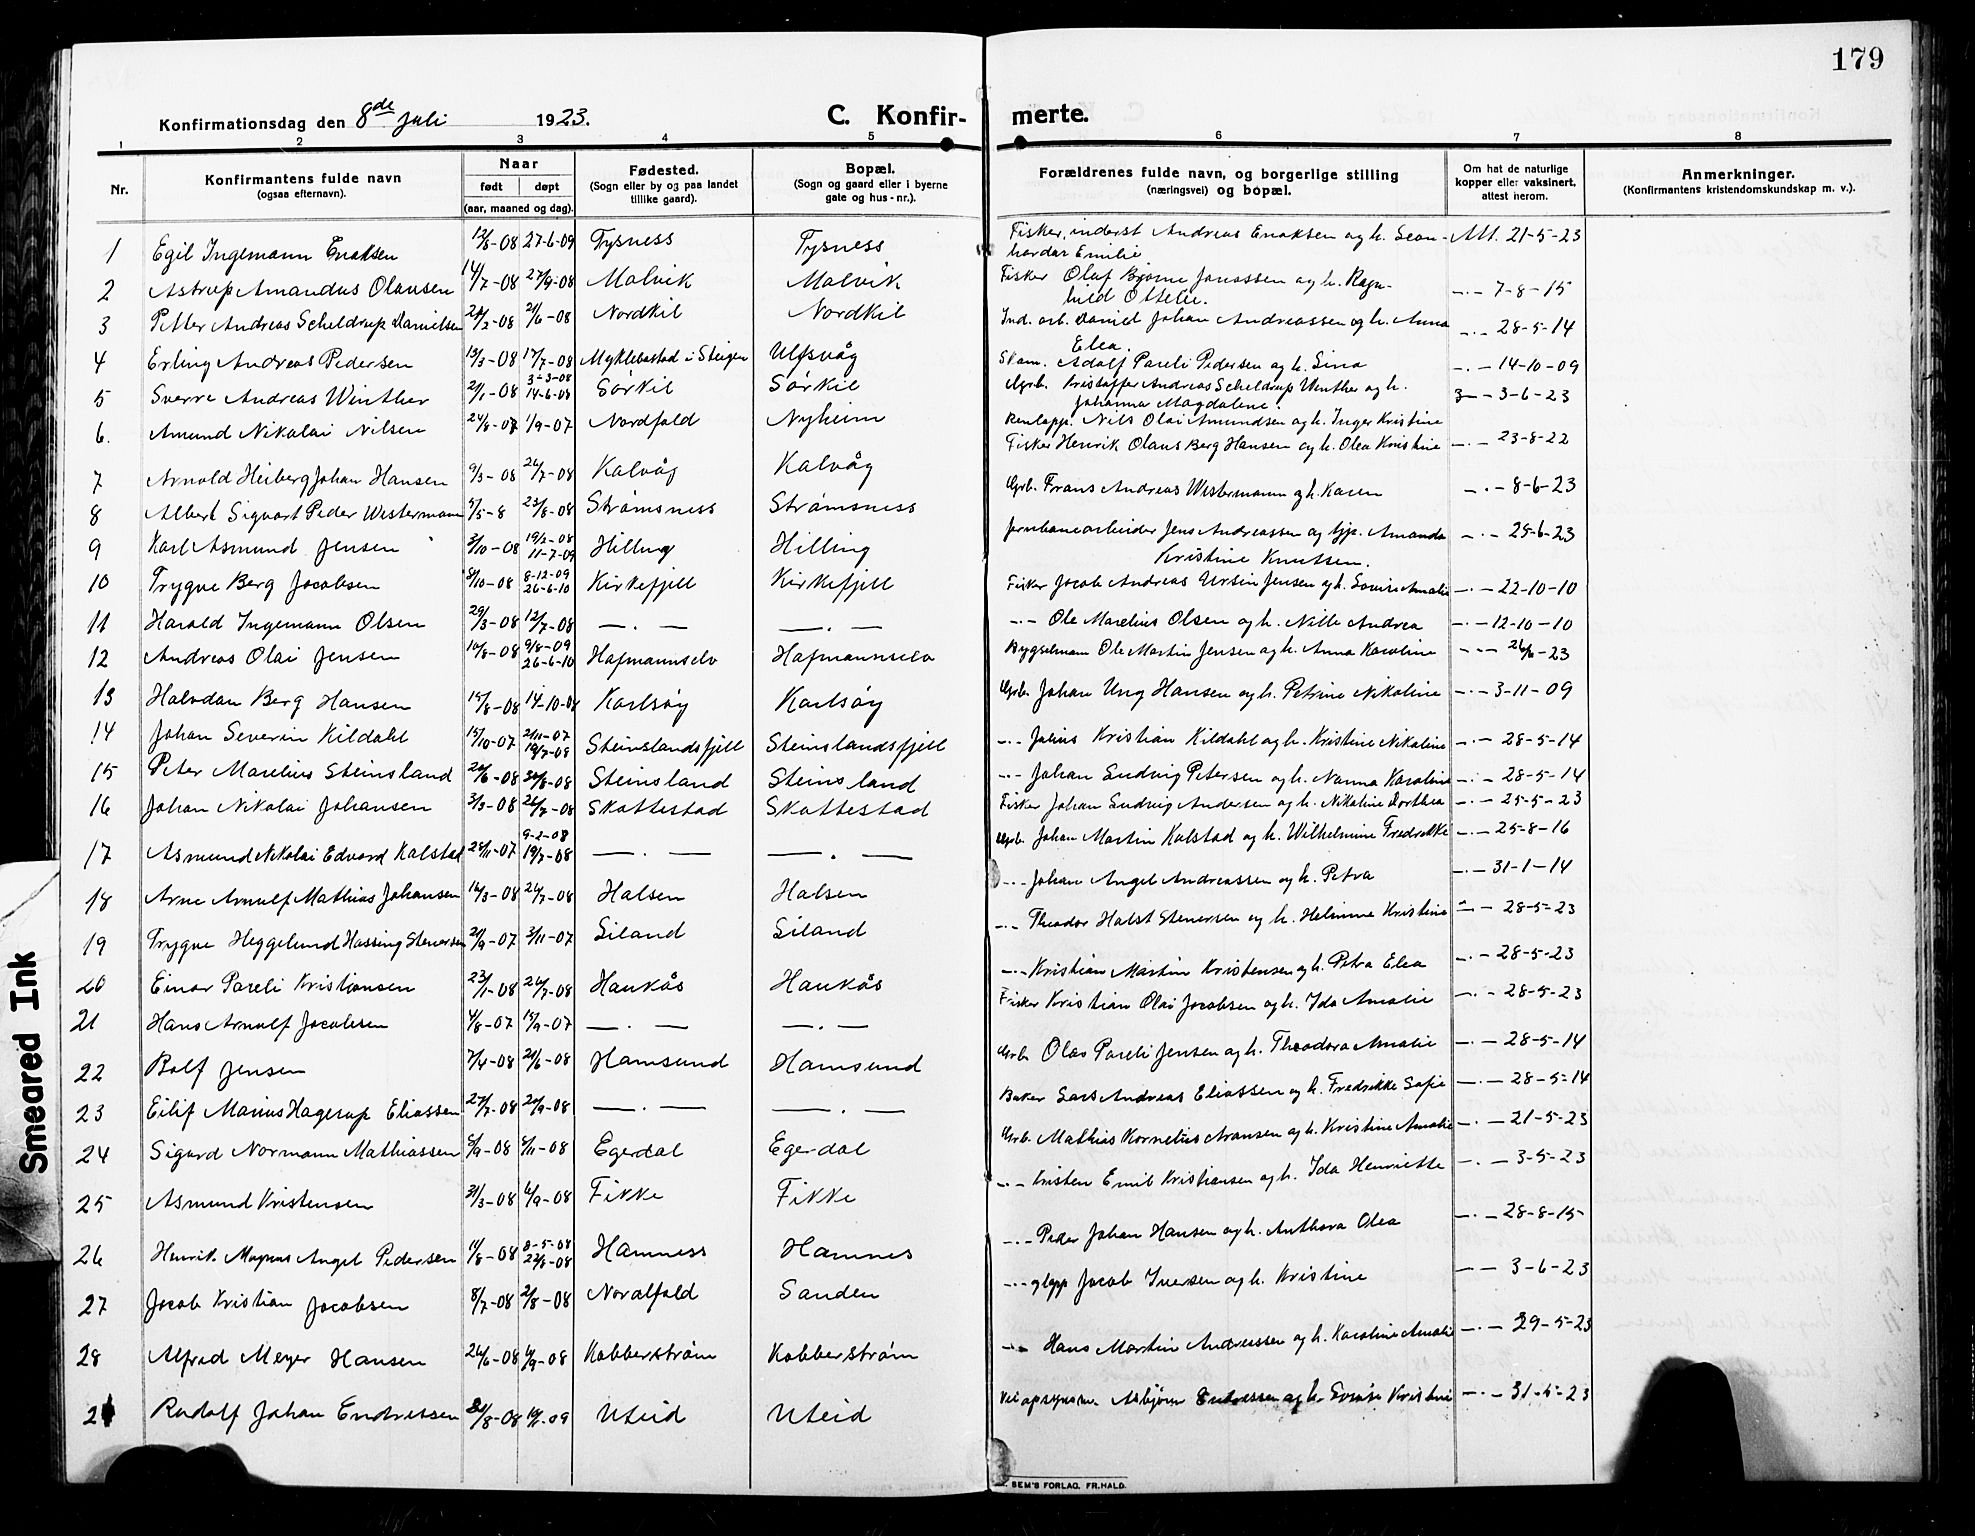 179
Konfirmationsdag den 8de Juli 1923.
C. Konfir- merte.
1 2 3 4 5 6 7 8
Nr.
Konfirmantens fulde navn (ogsaa efternavn).
Naar født døpt (aar, maaned og dag).
Fødested. (Sogn eller by og paa landet tillike gaard).
Bopæl. (Sogn og gaard eller i byerne gate og hus-nr.).
Forældrenes fulde navn, og borgerlige stilling (næringsvei) og bopæl.
Om hat de naturlige kopper eller vaksinert, attest herom.
Anmerkninger. (Konfirmantens kristendomskundskap m. v.).
1 Egil Ingemann Enoksen 12/6-08 27-6-09 Tysness Tysness Fisker, inderst Andreas Enoksen og h. Leon- Att. 21-5-23
harda Emilie
2 Astrup Amandus Olausen 14/7-08 27/9-08 Malvik Malvik Fisker Olaf Bjarne Jonassen og h. Ragn- -·- 7-8-15
hild Ottelie.
3 Petter Andreas Scheldrup Danielsen 24/2-08 21/6-08 Nordkil Nordkil Ind. arb. Daniel Johan Andreassen og h. Anna -·- 28-5-14
Elea.
4 Erling Andreas Pedersen 13/3-08 17/7-08 Myklebostad i Steigen Ulfsvåg Skom. Adolf Pareli Pedersen og h. Lina -·- 14-10-09
5 Sverre Andreas Winther 21/1-08 3-3-08 14-6-08 Sørkil Sørkil Grb. Kristoffer Andreas Scheldrup Winther og h. -- 3-6-23
Johanna Magdalene.
6. Amund Nikolai Nilsen 24/6-07 1/9-07 Nordfold Nyheim Renlapp. Nils Olai Amundsen og h. Inger Kristine
Fisker Henrik Olaus Berg Hansen og h. Olea Kristine -·- 23-8-22
7 Arnold Heiberg Johan Hansen 9/3-08 26/7-08 Kalvåg Kalvåg
8 Albert Sigvart Peder Westermann 5/5-8 23/8-08 Strømsness Strømsness Grb. Frans Andreas Westermann og h. Karen -·- 8-6-23
9 Karl Asmund Jensen 3/10-08 19/3-08 11-7-09 Hilling Hilling Jernbanearbeider Jens Andreassen og tjp. Amanda -·- 25-6-23
Kristine Knutsen.
10 Trygve Berg Jacobsen 8/10-08 8-12-09 26-6-10 Kirkefjell Kirkefjell Fisker Jacob Andreas Ursin Jensen og h. Lovise Amalie -·- 22-10-10
11 Harald Ingemann Olsen 29/3-08 12/7-08 -·- -·- -·- Ole Marelius Olsen og h. Nille Andrea -·- 12-10-10
12 Andreas Olai Jensen 10/8-08 9/8-09 26-6-10 Hafmannselv Hafmannselv Bygselmann Ole Martin Jensen og h. Anna Karoline -·- 26/6-23
13 Halvdan Berg Hansen 15/8-08 14-10-08 Karlsøy Karlsøy Grb. Johan Ung Hansen og h. Petrine Nikoline -·- 3-11-09
14 Johan Severin Kildahl 15/10-07 21/11-07 19/7-08 Steinslandsfjell Steinslandsfjell -·- Julius Kristian Kildahl og h. Kristine Nikoline -·- 28-5-14
15 Peter Marelius Steinsland 20/6-08 30/8-08 Steinsland Steinsland -·- Johan Ludvig Petersen og h. Nanna Karoline -·- 28-5-14
16 Johan Nikolai Johansen 3/3-08 26/7-08 Skottestad Skottestad Fisker Johan Ludvig Andersen og h. Nikoline Dorthea -·- 25-5-23
17 Asmund Nikolai Edvard Kalstad 28/11-07 9-2-08 19/7-08 -·- -·- Grb. Johan Martin Kalstad og h. Wilhelmine Fredrikke -·- 25-8-16
18 Arne Arnulf Mathias Johansen 16/3-08 26/7-08 Halsen Halsen -·- Johan Angel Andreassen og h. Petra -·- 31-1-14
19 Trygve Heggelund Hassing Stenersen 21/9-07 3/11-07 Liland Liland -·- Theodor Halst Stenersen og h. Helmine Kristine -·- 28-5-23
20 Einar Pareli Kristiansen 23/1-08 26/7-08 Haukås Haukås -·- Kristian Martin Kristensen og h. Petra Elea -·- 28-5-23
21 Hans Arnulf Jacobsen 4/8-07 15/9-07 -·- -·- Fisker Kristian Olai Jacobsen og h. Ida Amalie -·- 28-5-23
22 Rolf Jensen 7/4-08 21/6-08 Hamsund Hamsund Grb. Olas Pareli Jensen og h. Theodora Amalie -·- 28-5-14
23 Eilif Marius Hagerup Eliassen 27/7-08 20/9-08 -·- -·- Baker Lars Andreas Eliassen og h. Fredrikke Sofie -·- 28-5-14
24 Sigurd Normann Mathiassen 5/9-08 8/11-08 Egerdal Egerdal Grb. Mathias Kornelius Aronsen og h. Kristine Amalie -·- 21-5-23
25 Asmund Kristensen 31/3-08 6/9-08 Fikke Fikke -·- Kristen Emil Kristiansen og h. Ida Henriette -·- 3-5-23
26 Henrik Magnus Angel Pedersen 11/8-08 8-5-08 22/8-08 Hamness Hamnes -·- Peder Johan Hansen og h. Anthora Olea -·- 28-8-15
27 Jacob Kristian Jacobsen 8/7-08 2/8-08 Nordfold Sanden -·- Jacob Iversen og h. Kristine - - 3-6-23
28 Alfred Meyer Hansen 26/6-08 6/9-08 Kobberstrøm Kobberstrøm -·- Hans Martin Andreassen og h. Karoline Amalie -·- 29-5-23
Rudolf Johan Endressen 19/1-09 Uteid Uteid Asbjørn Endressen og h. Kristine -·- 31-5-23
SEM'S FORLAG, FR.HALD.
Smeared Ink